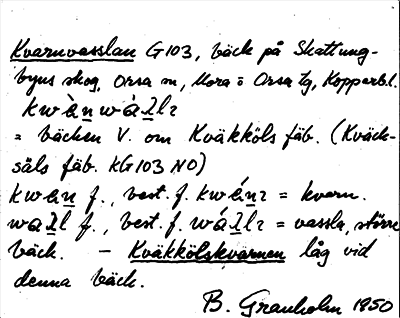 Kvarnvasslan G103, bäck på Skattung-
byns skog, Orsa sn, Mora o Orsa tg, Kopparb.l.
kwànwáḷḷz
= bäcken V. om Kväkköls fäb. (Kväck-
säls fäb. KG103 NO)
kwaṉ f., best. f. kwáṉz = kvarn.
waḷḷ f., best. f. wáḷḷz = vassla, större
bäck. – Kväkkölskvarnen låg vid
denna bäck.
B. Granholm 1950